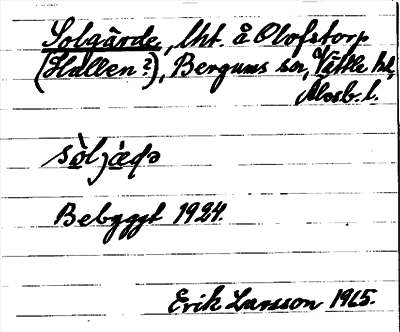 Solgärde, lht. å Olofstorp
(Hallen?), Bergums sn, Vättle hd,
Älvsb. l.
sòljæ̀ḍə
Bebyggt 1924.
Erik Larsson 1965.